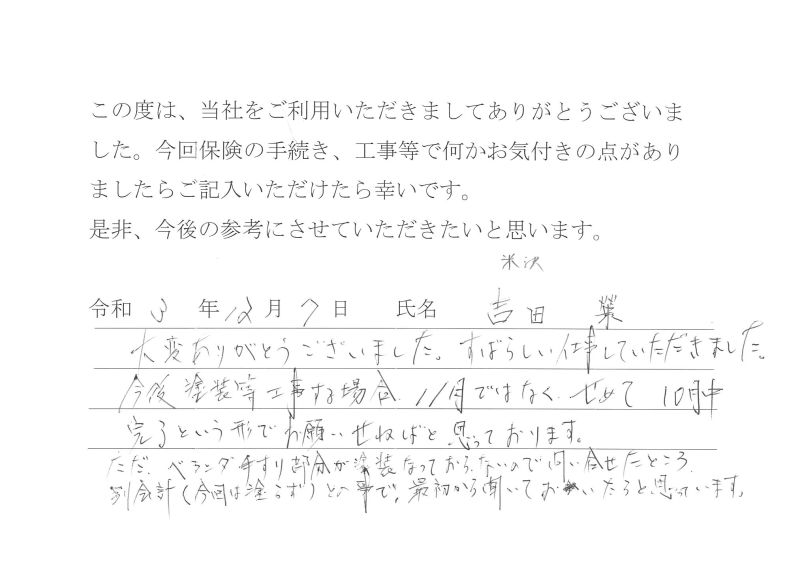 この度は、当社をご利用いただきましてありがとうございま
した。今回保険の手続き、工事等で何かお気付きの点があり
ましたらご記入いただけたら幸いです。
是非、今後の参考にさせていただきたいと思います。
米沢
令和 3 年 12 月 7 日 氏名 吉田 業
大変ありがとうございました。すばらしい仕事していただきました。
今後塗装等工事する場合、11月ではなく、せめて10月中
完るという形でお願いせねばと思っております。
ただ、ベランダ手すり部分が塗装なっておらないので問い合せたところ、
別会計(今回は塗らず)との事で、最初から聞いておいたらと思っています。